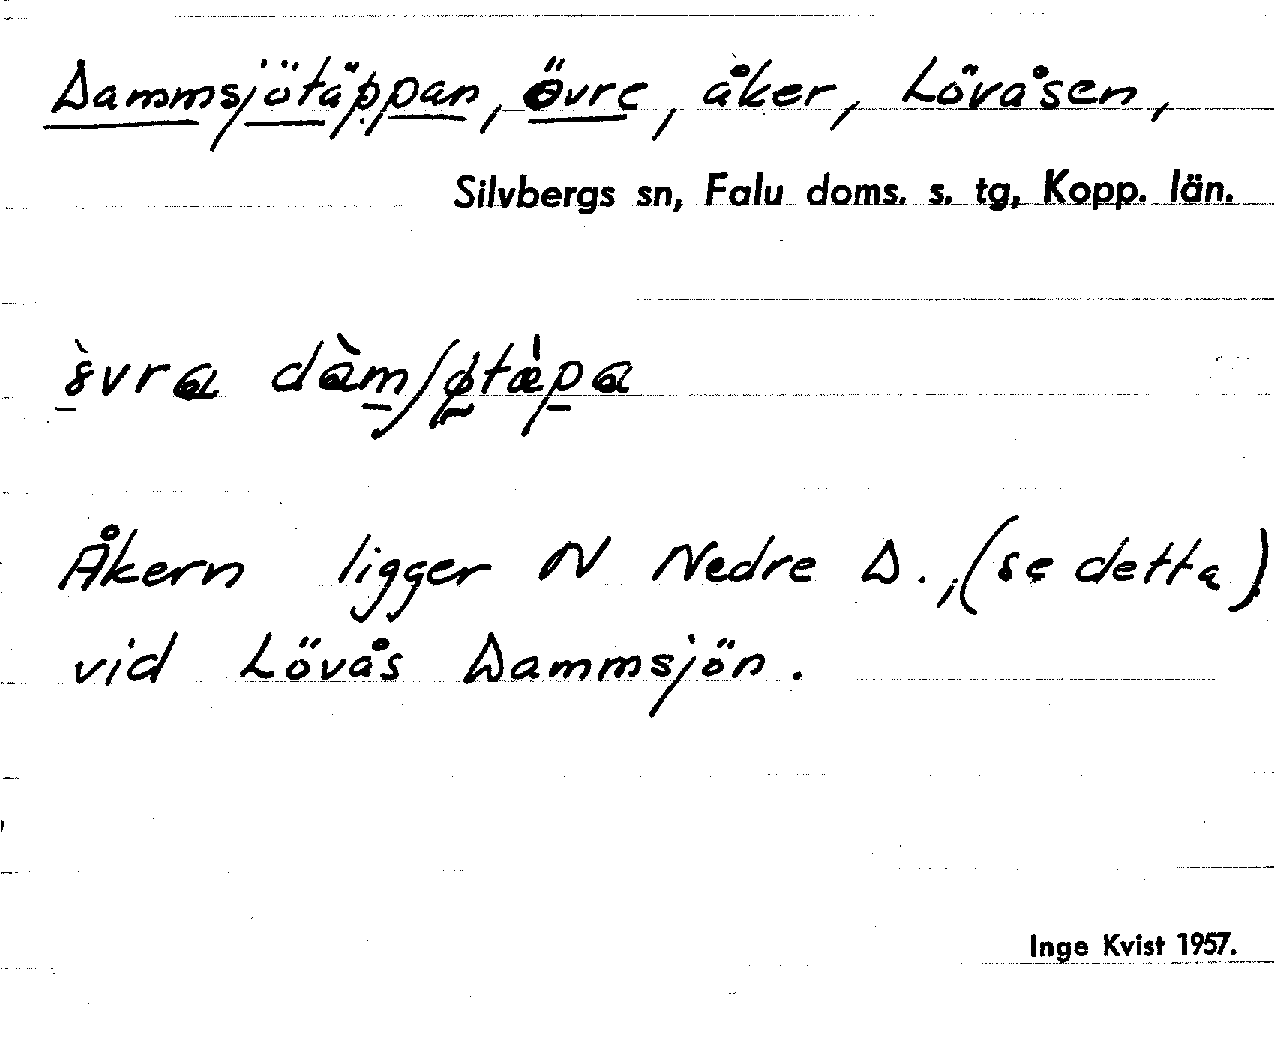 Dammsjötäppan, övre, åker, Lövåsen,
Silvbergs sn, Falu doms. s. tg, Kopp. län.
Åkern ligger N Nedre D., (se detta)
vid Lövås Dammsjön.
Inge Kvist 1957.